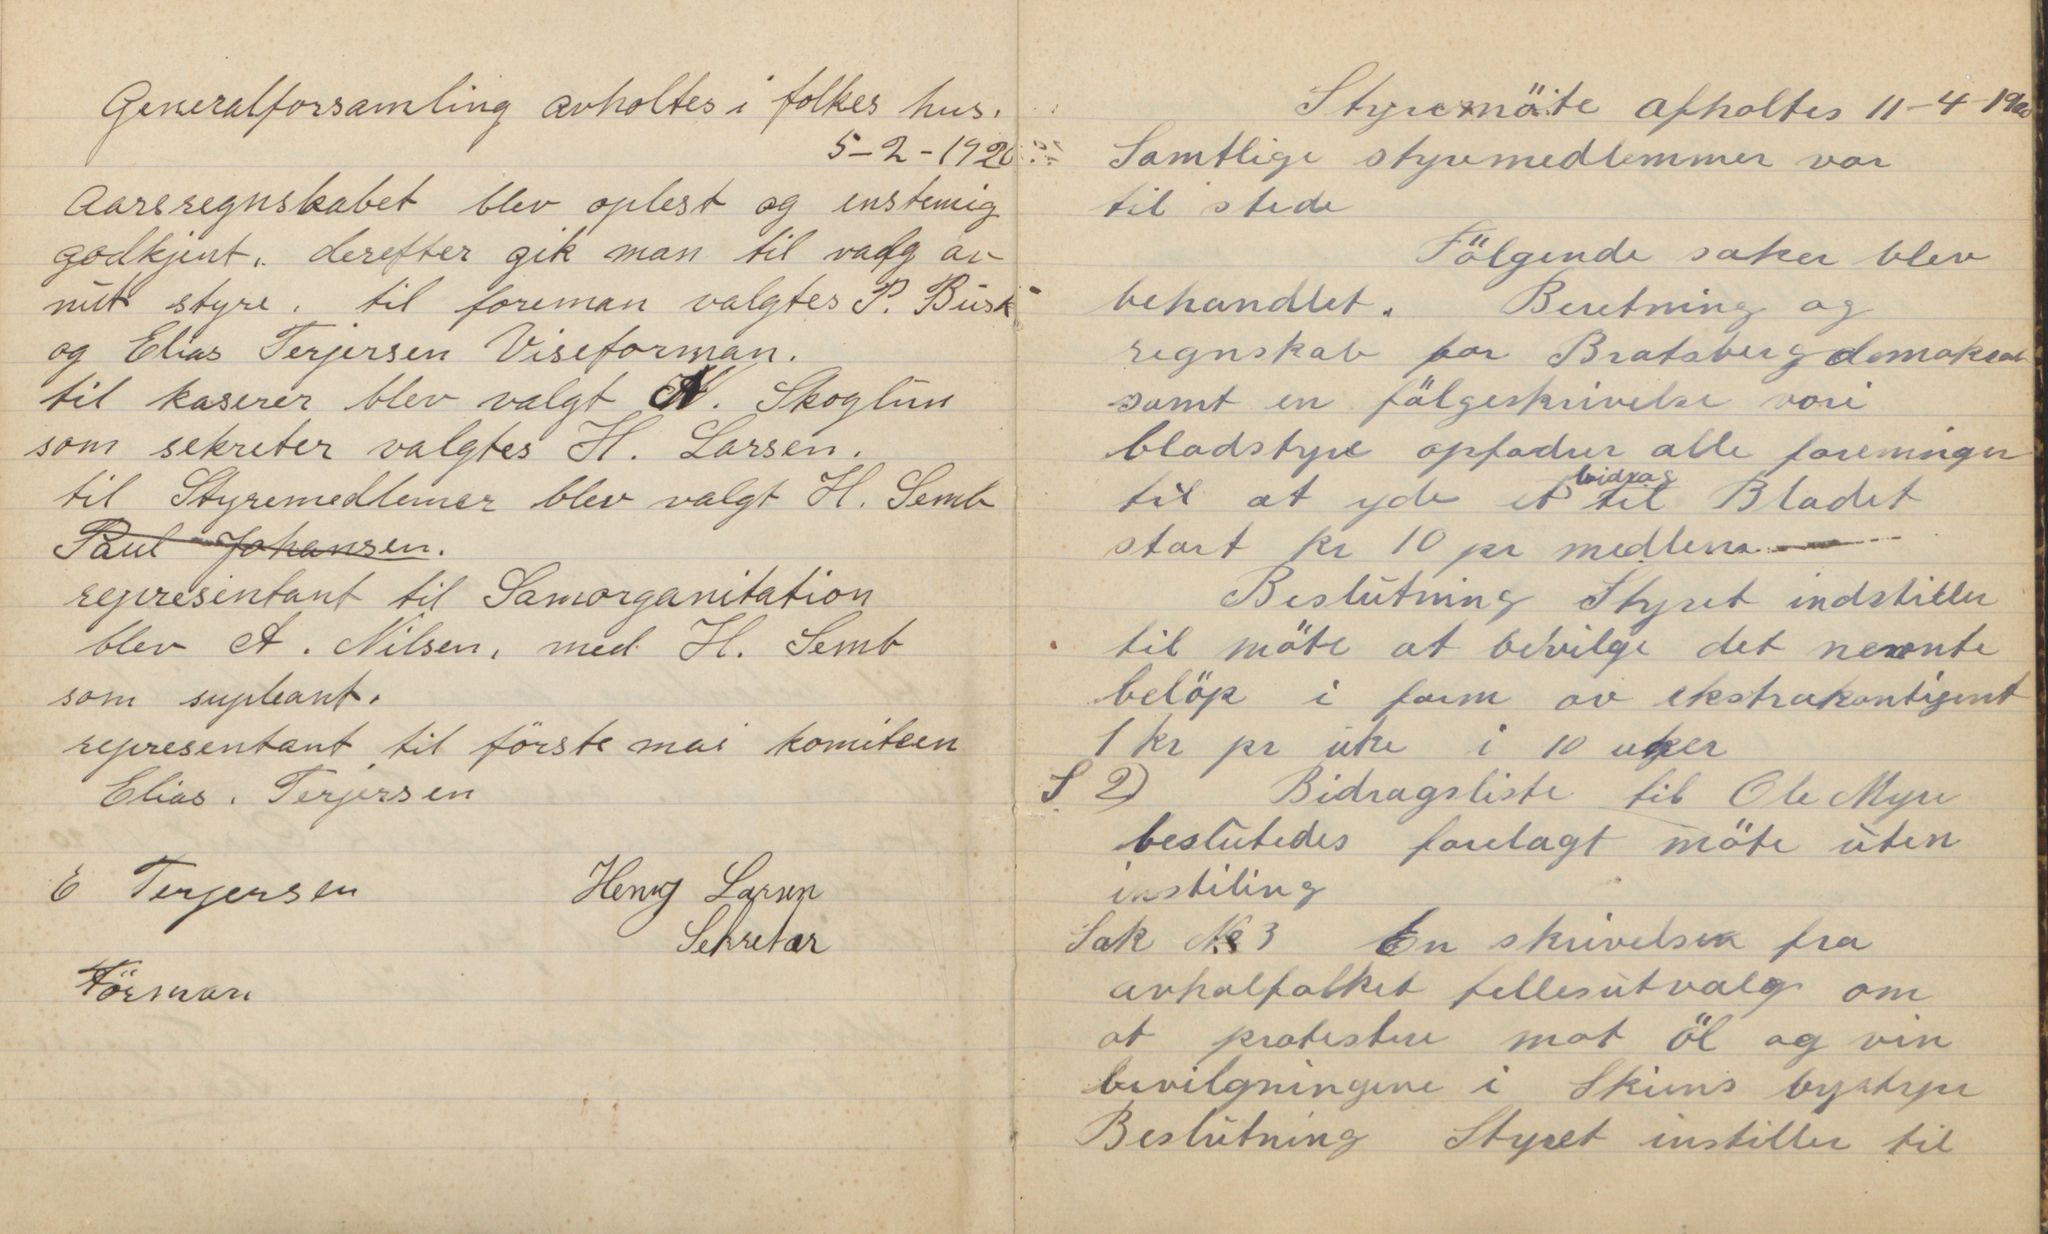 Generalforsamling avholtes i folkes hus.
5-2-1920
Aarsregnskabet blev oplest og enstemig
godkjent. derefter gik man til valg av
nüt styre. til foreman valgtes P. Büsk
og Elias Terjersen Viseforman.
til kaserer blev valgt N. Skoglün
som sekreter valgtes H. Larsen.
til Styremedlemer blev valgt H. Semb
Paul Johansen.
representant til Samorganitation
blev A. Nilsen, med H. Semb
som supleant.
representant til förste mai komiteen
Elias. Terjersen
E Terjersen Henry Larsen
Sekretær
Förman
Styremöte afholtes 11-4-1920
Samtlige styremedlemmer var
til stede
Fölgende saker blev
behandlet. Beretning og
regnskab for Bratsberg demokrat
samt en fölgeskrivelse vori
bladstyre opfodrer alle foreninger
til at yde et bidrag til Bladet
stort kr 10 pr medlem
Beslütning Styret indstiller
til möte at bevilge det nevnte
belöp i form av ekstrakontigent
1 kr pr üke i 10 uker
S 2) Bidragsliste til Ole Myre
beslütedes forelagt möte üten
instiling
Sak No 3 En skrivelse fra
avholfolket fellesütvalg om
at protestere mot öl og vin
bevilgningene i Skiens bystyre
Beslütning Styret instiller til